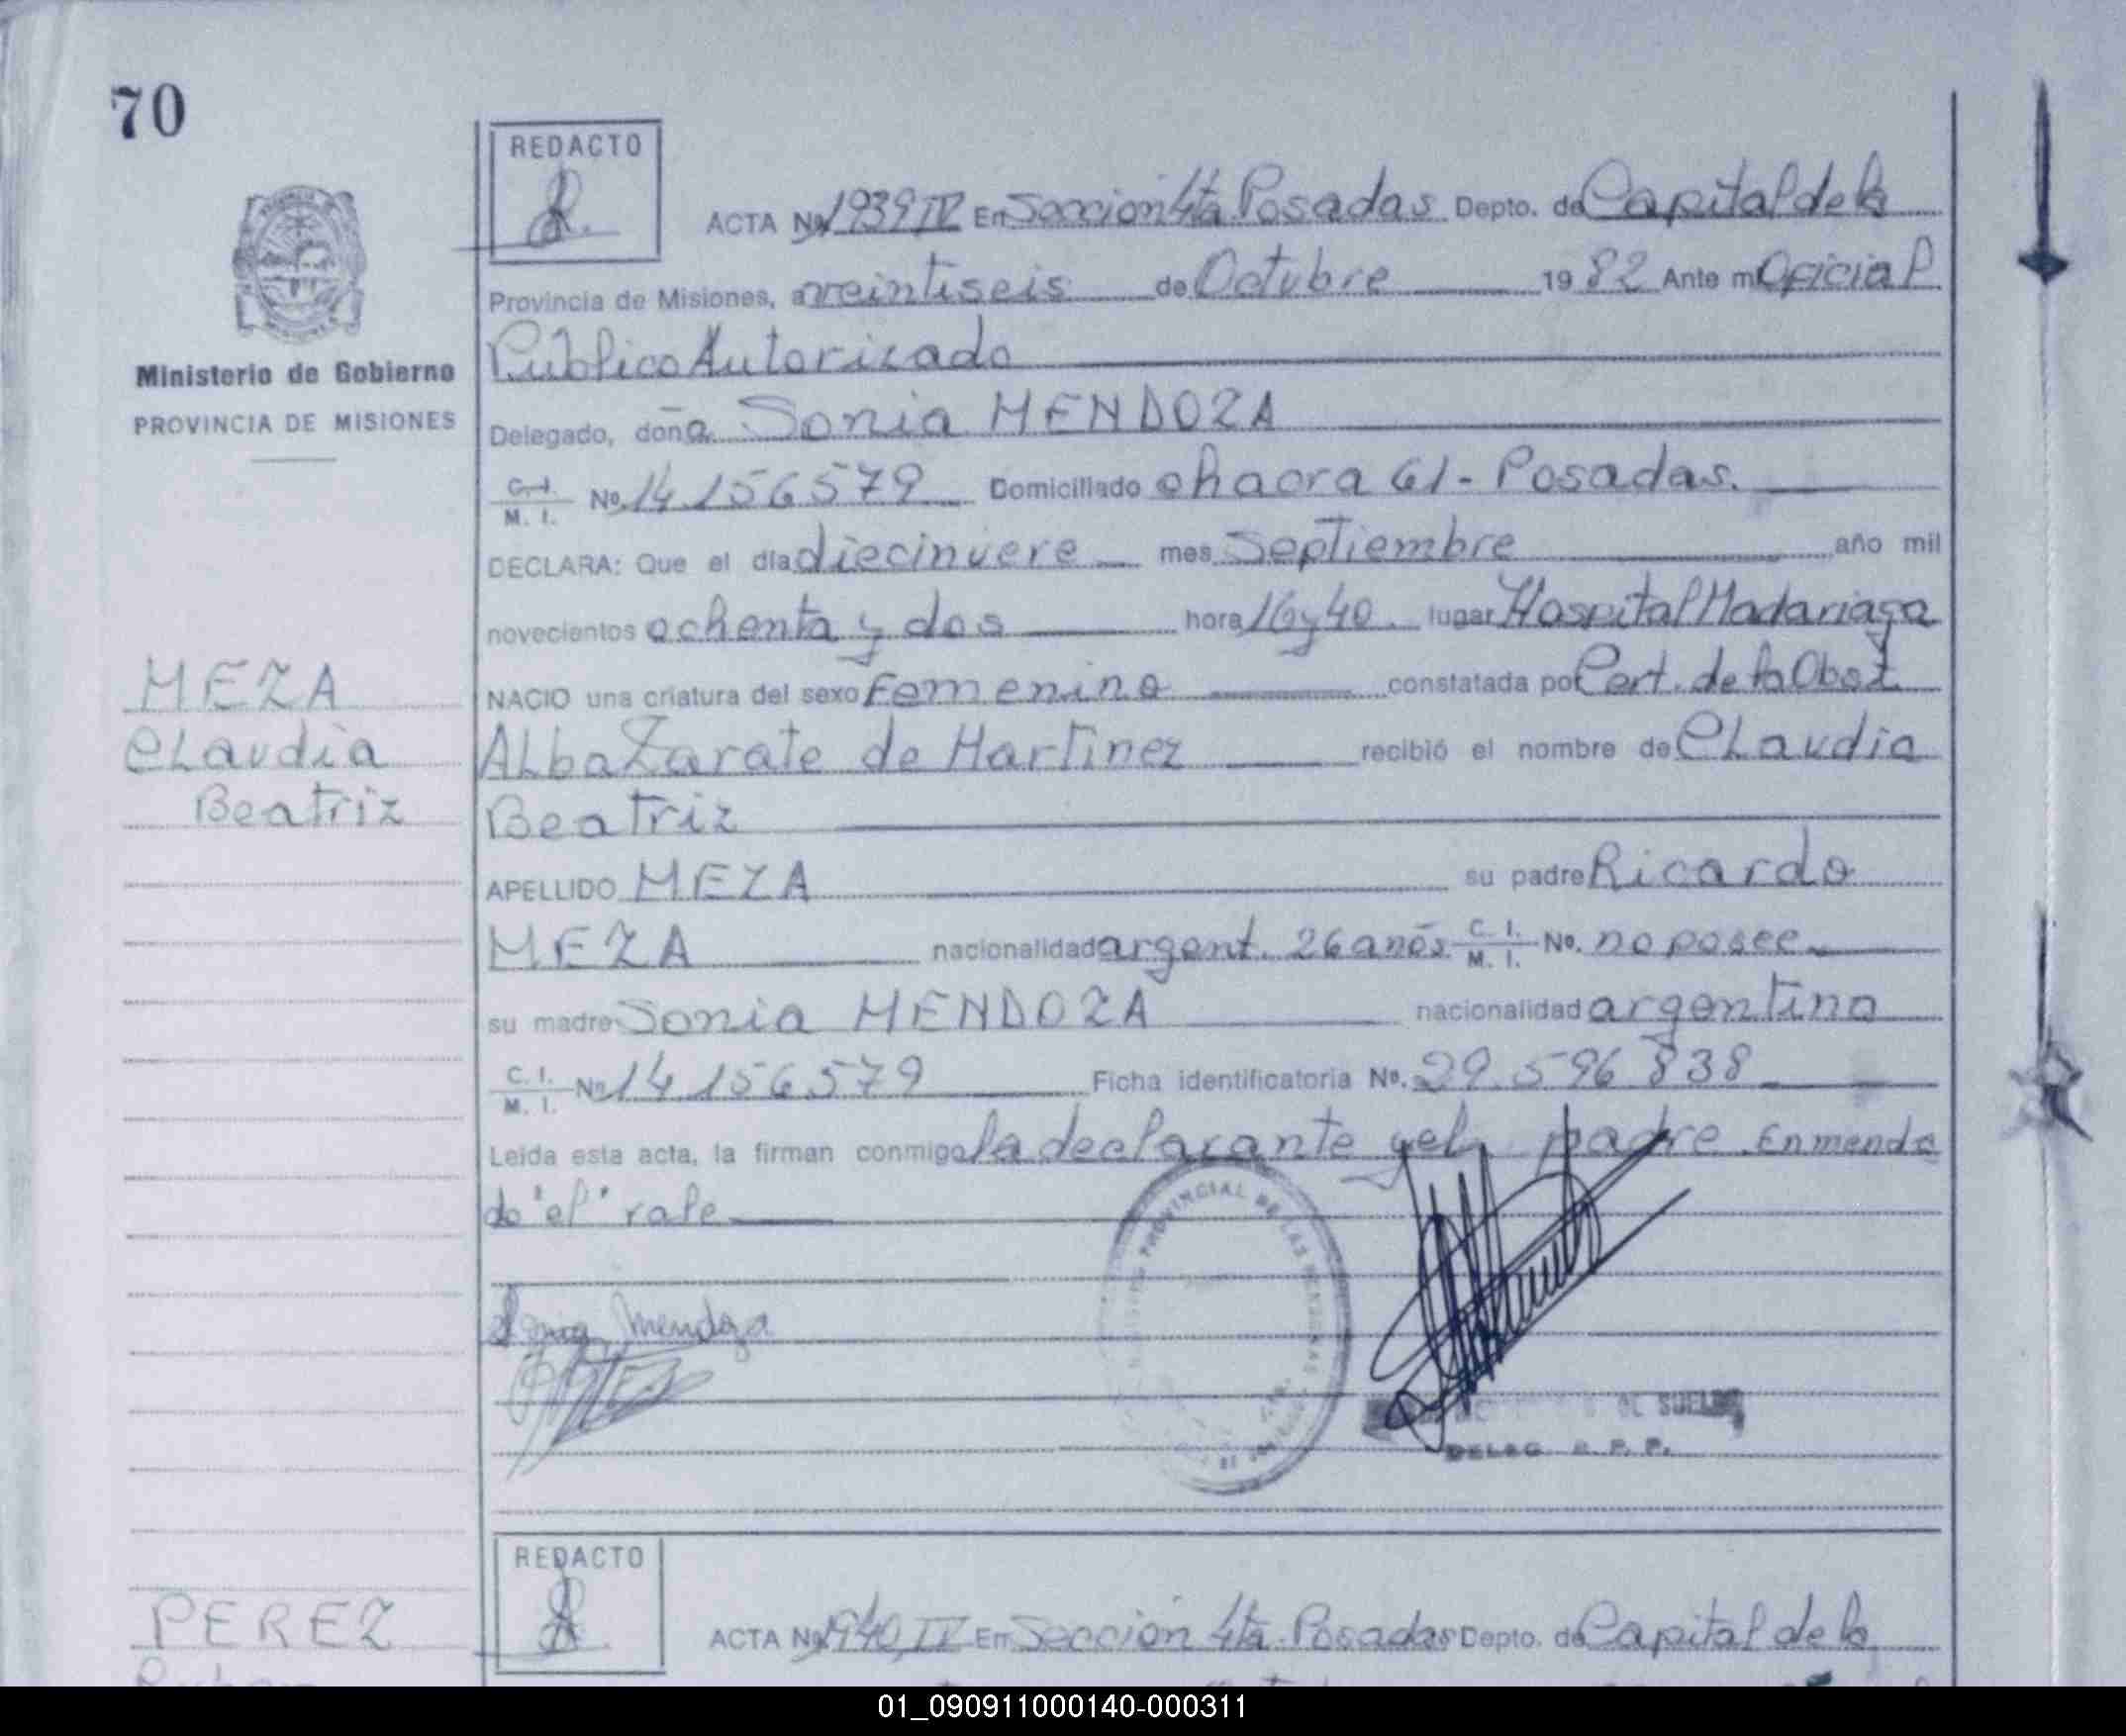 70
REDACTO
ACTA Nº 1939 IV En Sección 4ta Posadas Depto. de Capital de la
Provincia de Misiones, a veintiseis de Octubre 1982 Ante mi Oficial
Público Autorizado
Ministerio de Gobierno
PROVINCIA DE MISIONES
Delegado, doña Sonia MENDOZA
C. I. M. I. Nº. 14.156579 Domiciliado chacra 61 - Posadas.
DECLARA: Que el día diecinueve mes Septiembre año mil
novecientos ochenta y dos hora 16 y 40. lugar Hospital Madariaga
MEZA
NACIO una criatura del sexo Femenino constatada por Cert. de la Obst.
Claudia
Alba Zarate de Martinez recibió el nombre de Claudia
Beatriz
Beatriz
APELLIDO MEZA su padre Ricardo
MEZA nacionalidad argent. 26 años. C. I. M. I. Nº. no posee
su madre Sonia MENDOZA nacionalidad argentina
C. I. M. I. Nº 14.156579 Ficha identificatoria Nº. 29.596838
Leida esta acta, la firman conmigo la declarante y el padre. Enmenda
do "el" vale
PROVINCIAL DE LAS PERSONAS
Sonia Mendoza
DE SUELDO
DELEG R. P. P.
REDACTO
PEREZ
ACTA Nº 1940 IV En Sección 4ta. Posadas Depto. de Capital de la
01_090911000140-000311